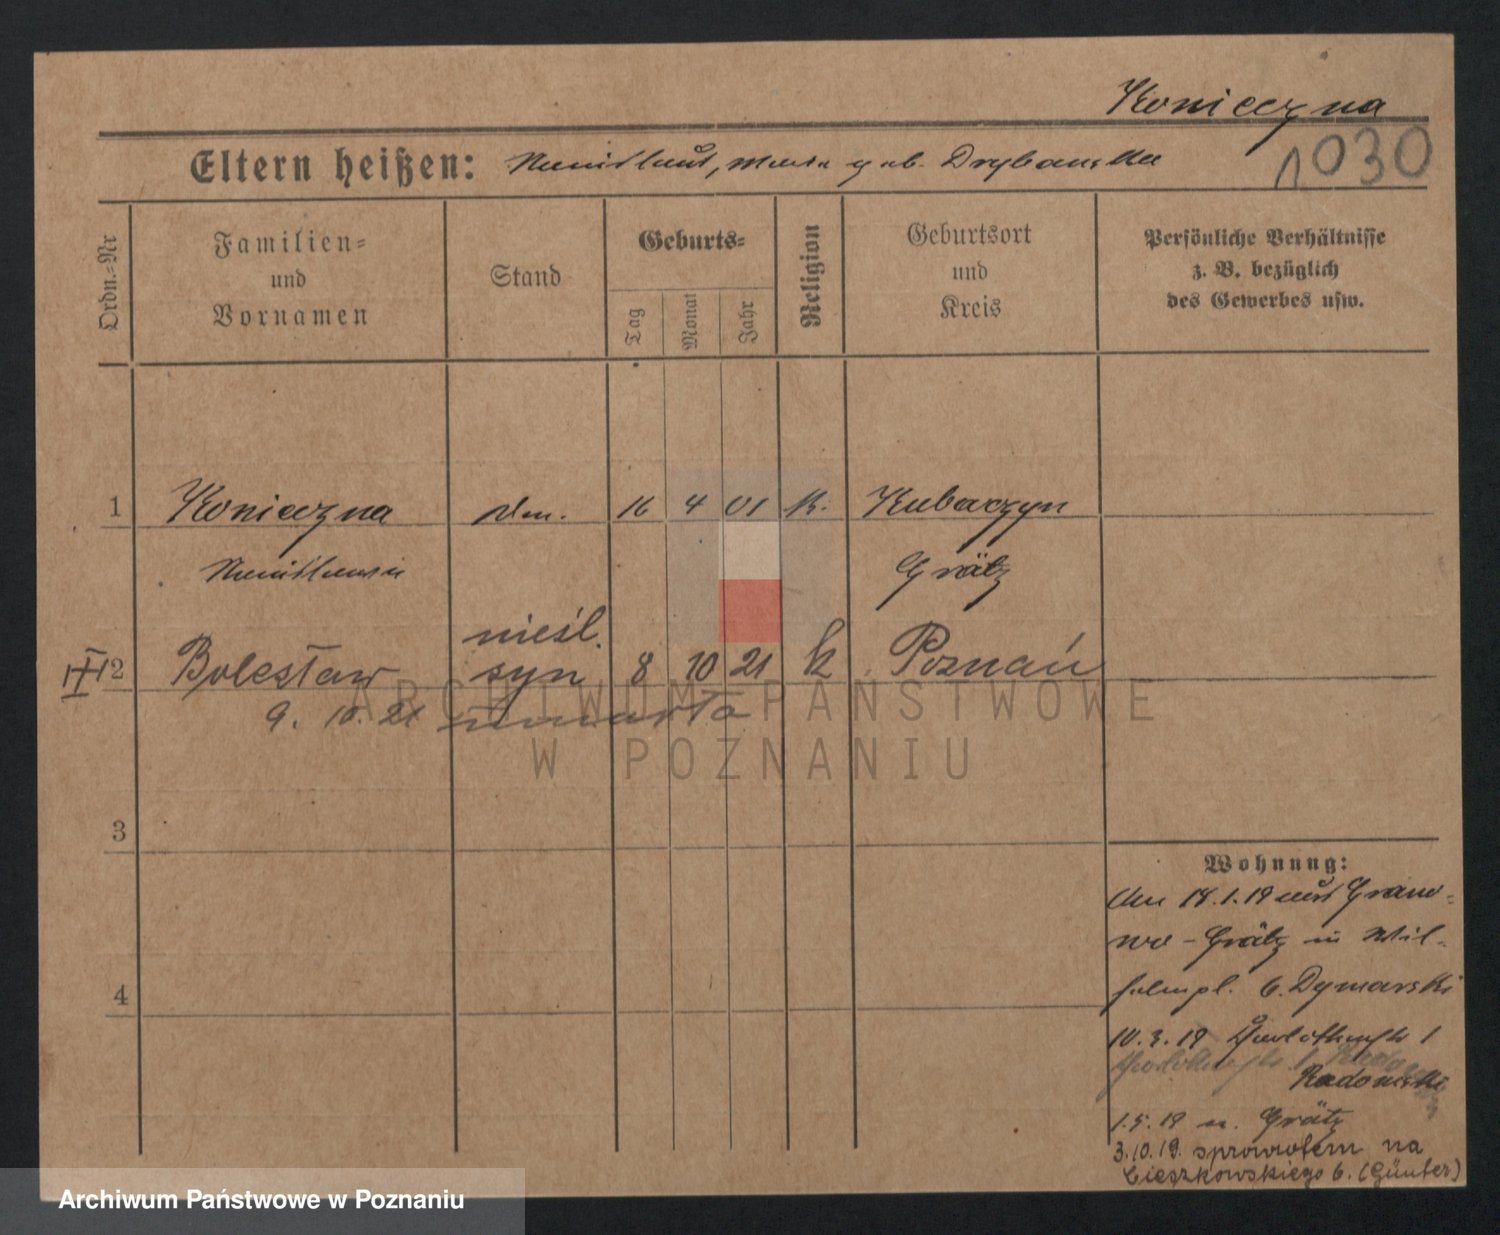 Konieczna
1030
Eltern heißen: geb.
Ordn.=Nr
Familien=
und
Vornamen
Stand
Geburts=
Tag
Monat
Jahr
Religion
Geburtsort
und
Kreis
Persönliche Verhältnisse
z. B. bezüglich
des Gewerbes usw.
1 Konieczna 16 4 01 K. Kubaczyn
Grätz
nieśl.
2 Bolesław syn 8 10 21 k Poznań
9. 10. 21 umarło
ARCHIWUM PAŃSTWOWE
W POZNANIU
3
4
Wohnung:
18.1.19 aus Grano=
wo - Grätz in Wil-
helmpl. 6. Dymarski
10.3.19 1
Radomski
1.5.19 n. Grätz
3.10.19. sprowrotem na
Cieszkowskiego 6. (Günter)
Archiwum Państwowe w Poznaniu